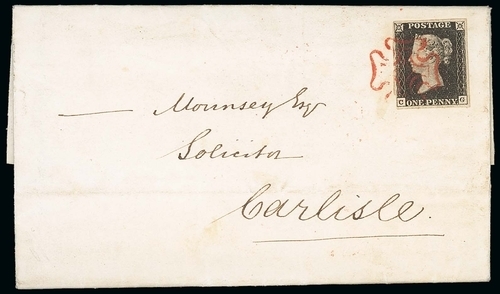 POSTAGE
C G
ONE PENNY
Mounsey Esqr
Solicitor
Carlisle.